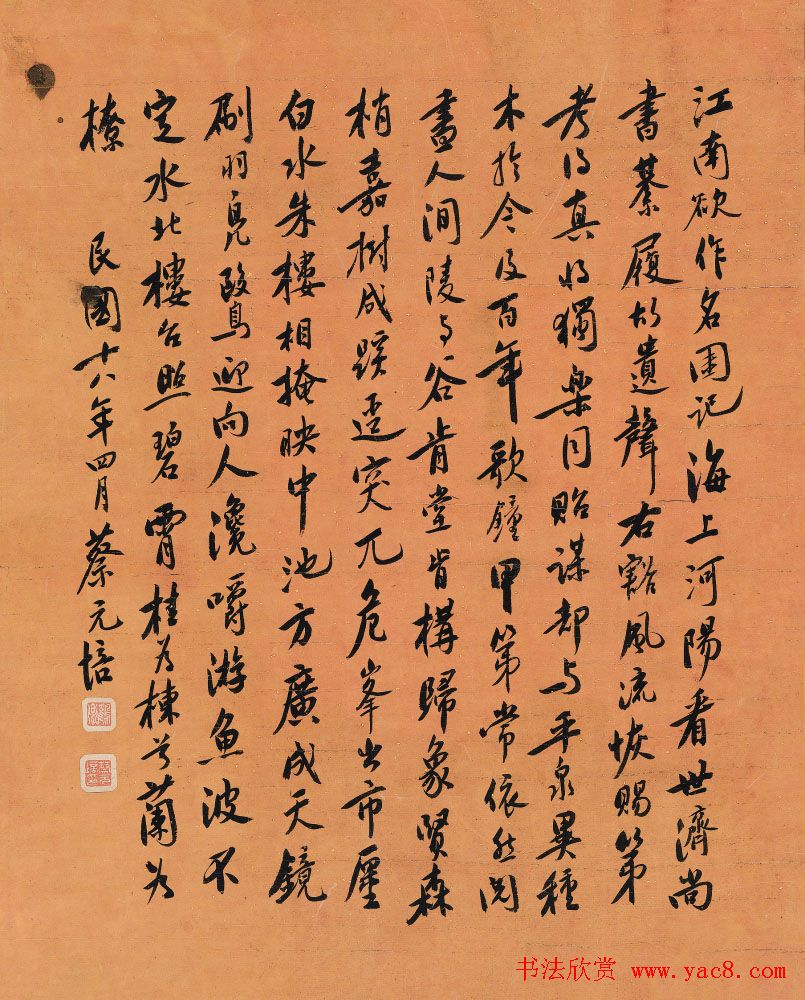 江南欲作名園記海上河陽看世濟尚
書綦履故遺聲右豁風流恢賜第
考得真將獨樂同貽謀却與平泉異種
木於今及百年歌鐘甲第常依然閱
盡人間陵與谷肯堂肯構歸象賢森
梢嘉樹成蹊迳突兀危峯出市廛
白水朱樓相掩映中池方廣成天鏡
刷羽鳧鷖迎向人瀺嚼游魚波不
定水北樓台照碧霄桂為棟兮蘭為
橑
民國十八年四月蔡元培
书法欣赏 www.yac8.com